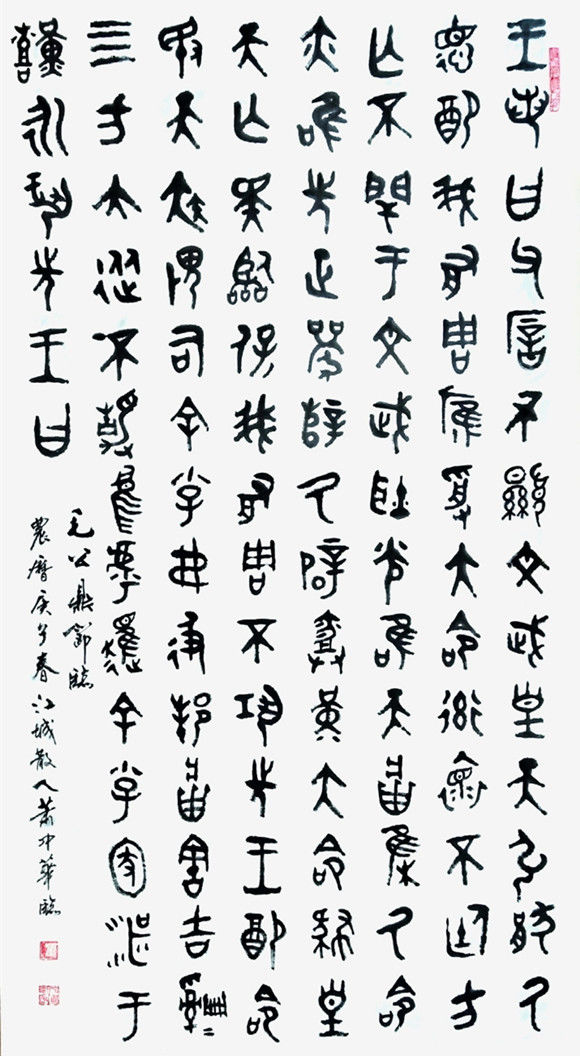 王若曰父厝不顯文武皇天引猒厥
德配我有周膺受大命率懷不廷方
亡不閈于文武耿光唯天將集厥命
亦唯先正襄辥厥辟堇大命肆皇
天亡斁臨保我有周不巩先王配命
敃天疾畏司余小子弗彶邦將害吉
四方大從不靜烏虖趯余小子圂湛于
艱永巩先王曰
毛公鼎節臨
農曆庚子春江城散人蕭中華臨